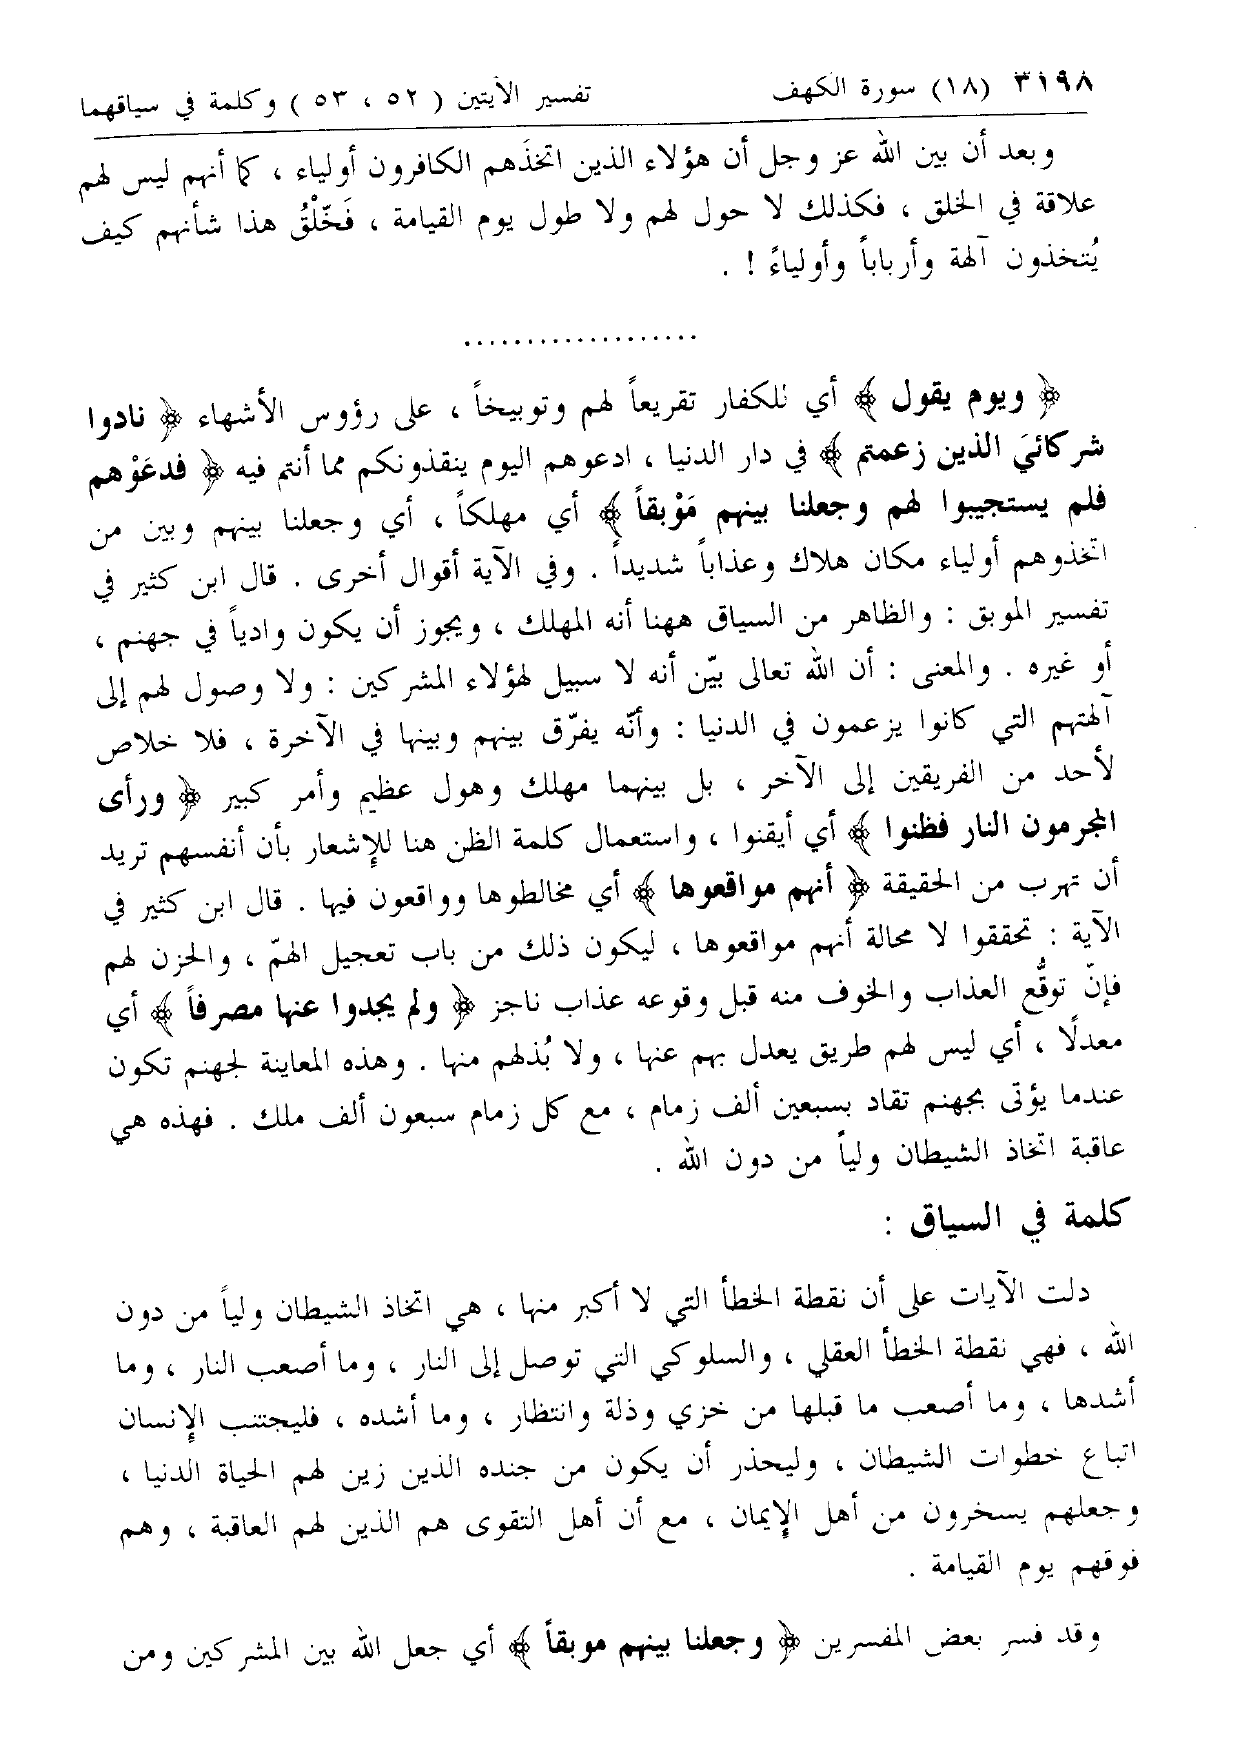 ٣١٩٨ (١٨) سورة الكهف تفسير الآيتين ( ٥٢ ، ٥٣ ) وكلمة في سياقهما
وبعد أن بين الله عز وجل أن هؤلاء الذين اتخذَهم الكافرون أولياء ، كما أنهم ليس لهم
علاقة في الخلق ، فكذلك لا حول لهم ولا طول يوم القيامة ، فَخّلْقُ هذا شأنهم كيف
يُتخذون آلهة وأرباباً وأولياءً ! .
...................
﴿ ويوم يقول ﴾ أي للكفار تقريعاً لهم وتوبيخاً ، على رؤوس الأشهاء ﴿ نادوا
شركائيَ الذين زعمتم ﴾ في دار الدنيا ، ادعوهم اليوم ينقذونكم مما أنتم فيه ﴿ فدعَوْهم
فلم يستجيبوا لهم وجعلنا بينهم مَوْبقاً ﴾ أي مهلكاً ، أي وجعلنا بينهم وبين من
اتخذوهم أولياء مكان هلاك وعذاباً شديداً . وفي الآية أقوال أخرى . قال ابن كثير في
تفسير الموبق : والظاهر من السياق ههنا أنه المهلك ، ويجوز أن يكون وادياً في جهنم ،
أو غيره . والمعنى : أن الله تعالى بيّن أنه لا سبيل لهؤلاء المشركين : ولا وصول لهم إلى
آلهتهم التي كانوا يزعمون في الدنيا : وأنّه يفرّق بينهم وبينها في الآخرة ، فلا خلاص
لأحد من الفريقين إلى الآخر ، بل بينهما مهلك وهول عظيم وأمر كبير ﴿ ورأى
المجرمون النار فظنوا ﴾ أي أيقنوا ، واستعمال كلمة الظن هنا للإشعار بأن أنفسهم تريد
أن تهرب من الحقيقة ﴿ أنهم مواقعوها ﴾ أي مخالطوها وواقعون فيها . قال ابن كثير في
الآية : تحققوا لا محالة أنهم مواقعوها ، ليكون ذلك من باب تعجيل الهمّ ، والحزن لهم
فإنّ توقُّع العذاب والخوف منه قبل وقوعه عذاب ناجز ﴿ ولم يجدوا عنها مصرفاً ﴾ أي
معدلًا ، أي ليس لهم طريق يعدل بهم عنها ، ولا بُذلهم منها . وهذه المعاينة لجهنم تكون
عندما يؤتى بجهنم تقاد بسبعين ألف زمام ، مع كل زمام سبعون ألف ملك . فهذه هي
عاقبة اتخاذ الشيطان ولياً من دون الله .
كلمة في السياق :
دلت الآيات على أن نقطة الخطأ التي لا أكبر منها ، هي اتخاذ الشيطان ولياً من دون
الله ، فهي نقطة الخطأ العقلي ، والسلوكي التي توصل إلى النار ، وما أصعب النار ، وما
أشدها ، وما أصعب ما قبلها من خزي وذلة وانتظار ، وما أشده ، فليجتنب الإنسان
اتباع خطوات الشيطان ، وليحذر أن يكون من جنده الذين زين لهم الحياة الدنيا ،
وجعلهم يسخرون من أهل الإيمان ، مع أن أهل التقوى هم الذين لهم العاقبة ، وهم
فوقهم يوم القيامة .
وقد فسر بعض المفسرين ﴿ وجعلنا بينهم موبقاً ﴾ أي جعل الله بين المشركين ومن